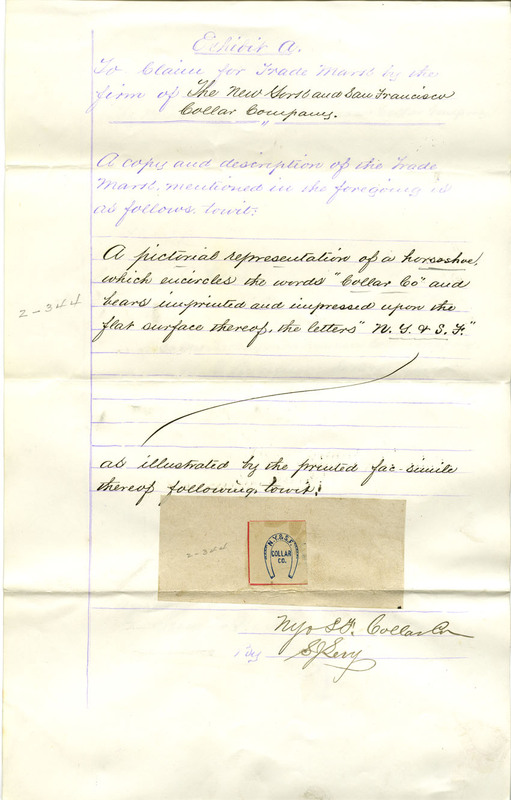 Exhibit A.
To Claim for Trade Mark by the
firm of The New York and San Francisco
Collar Company.
A copy and description of the Trade
Mark, mentioned in the foregoing is
as follows, towit:
A pictorial representation of a horseshoe,
which encircles the words "Collar Co" and
bears imprinted and impressed upon the
flat surface thereof, the letters "N. Y. & S. F."
2-344
as illustrated by the printed fac-simile
thereof following, towit:
2-344
N.Y.& S.F.
COLLAR
CO.
NY & S. F. Collar Co
By S J Levy